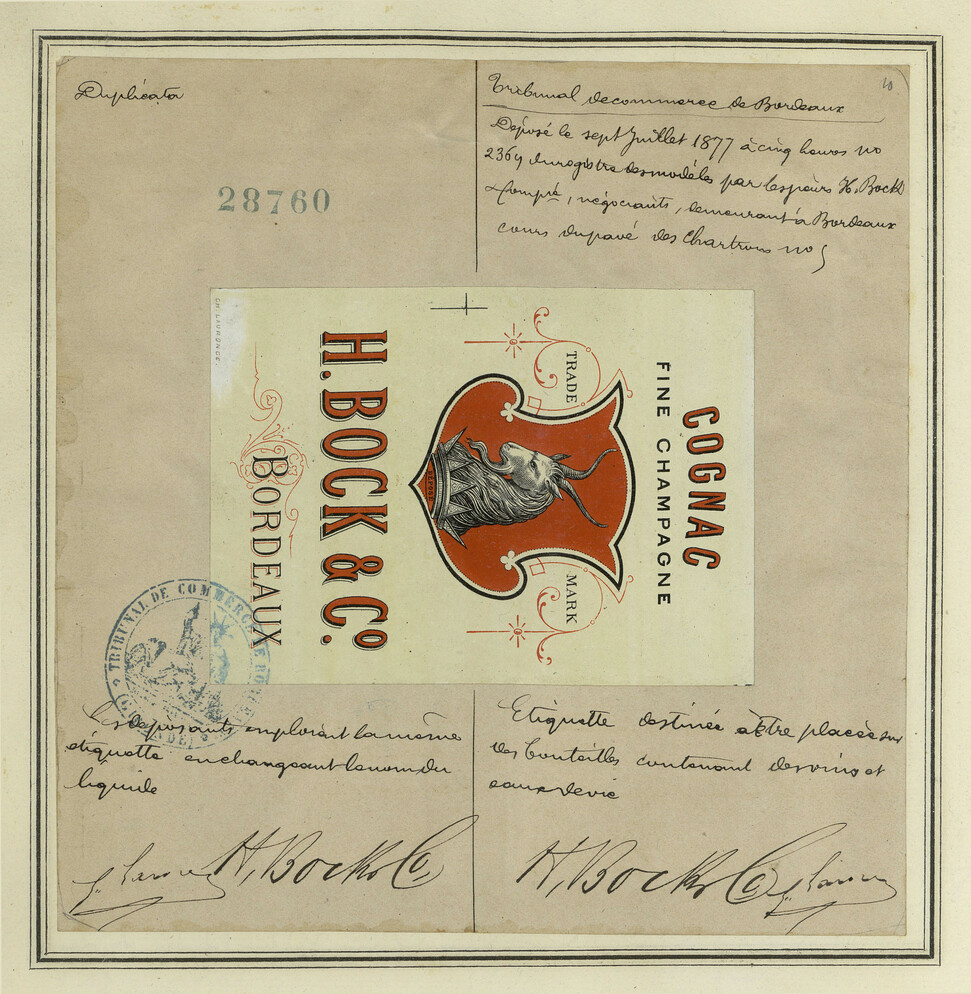 Duplicata
28760
10
Tribunal de commerce de Bordeaux
Déposé le sept Juillet 1877 à cinq heures no
2369 du registre des modèles par les sieurs H. Bock &
Compie, négociants, demeurant à Bordeaux
cours du pavé des Chartrons no 5
CH. LAVRONCE.
COGNAC
FINE CHAMPAGNE
TRADE
MARK
DÉPOSÉ
H. BOCK & Co.
BORDEAUX
TRIBUNAL DE COMMERCE DE BORDEAUX
(GIRONDE)
Les déposants emploient la même
étiquette en changeant le nom du
liquide
H. Bock & Co
Etiquette destinée à être placée sur
des bouteilles contenant des vins et
eaux de vie
H. Bock & Co